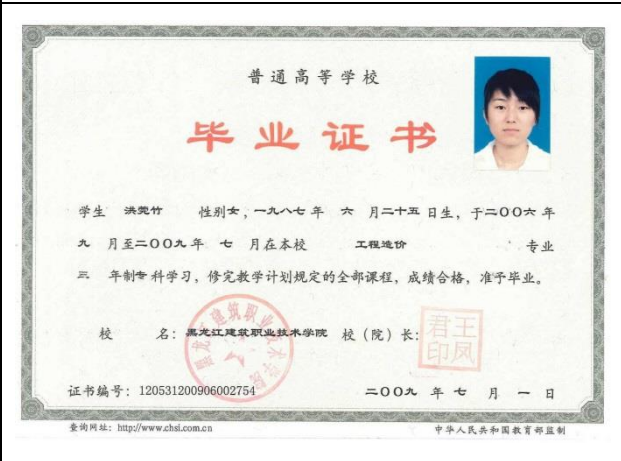 普通高等学校
毕业证书
学生 洪莞竹 性别女，一九八七年 六 月二十五日生，于二〇〇六年
九 月至二〇〇九年 七 月在本校 工程造价 专业
三 年制专科学习，修完教学计划规定的全部课程，成绩合格，准予毕业。
校 名：黑龙江建筑职业技术学院 校（院）长：
王凤君印
黑龙江建筑职业技术学院
证书编号：120531200906002754 二〇〇九 年 七 月 一 日
查询网址：http://www.chsi.com.cn 中华人民共和国教育部监制